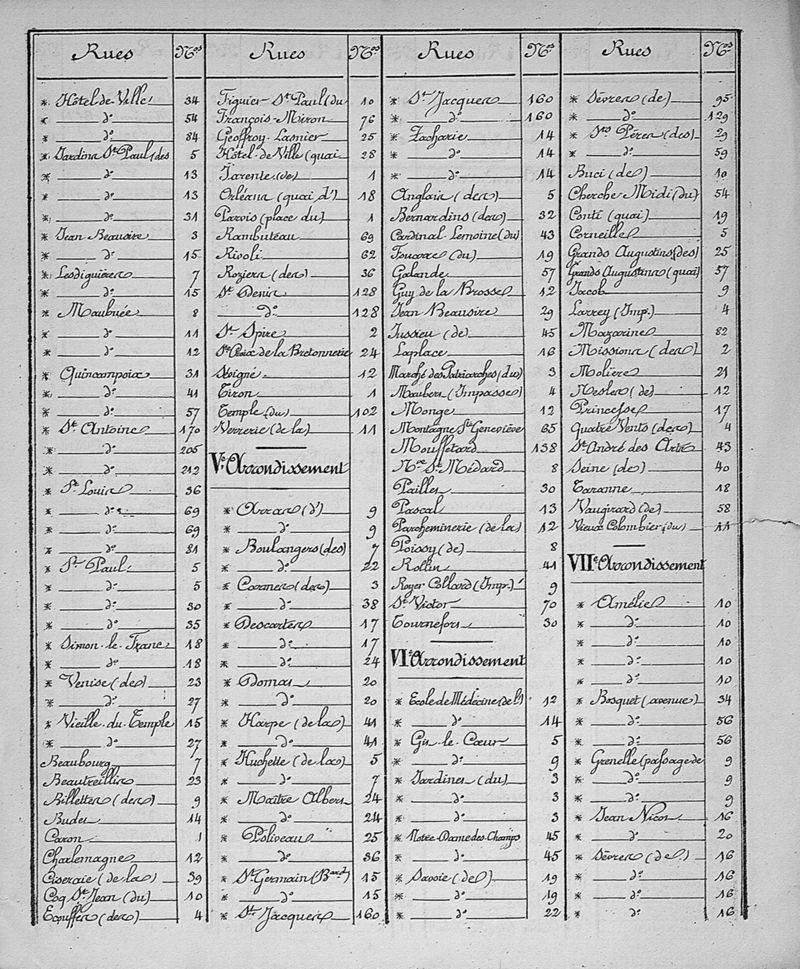 Rues Nos
* Hôtel-de-Ville 34
* do 54
* do 84
* Jardins St Paul (des 5
* do 13
* do 13
* do 31
* Jean Beausire 3
* do 15
* Lesdiguières 7
* do 15
* Maubuée 8
* do 11
* do 12
* Quincampoix 31
* do 41
* do 57
* St Antoine 170
* do 205
* do 212
* St Louis 36
* do 69
* do 69
* do 81
* St Paul 5
* do 5
* do 30
* do 35
* Simon-le-Franc 18
* do 18
* Venise (de) 23
* do 27
* Vieille-du-Temple 15
* do 27
Beaubourg 7
Beautreillis 23
Billettes (des) 9
Budes 14
Caron 1
Charlemagne 12
Ciseraie (de la) 39
Coq St Jean (du) 10
Ecouffes (des) 4
Rues Nos
Figuier-St Paul (du 10
François-Miron 76
Geoffroy-Lasnier 25
Hôtel-de-Ville (quai 28
Jarente (de) 1
Orléans (quai d') 18
Parvis (place du) 1
Rambuteau 69
Rivoli 62
Roziers (des) 36
St Denis 128
do 128
St Spire 2
Ste Croix de la Bretonnerie 24
Sévigné 12
Tiron 1
Temple (du) 102
Verrerie (de la) 11
Ve Arrondissement
* Arras (d') 9
* do 9
* Boulangers (des) 7
* do 22
* Carmes (des) 3
* do 38
* Descartes 17
* do 17
* do 24
* Domat 20
* do 20
* Harpe (de la) 41
* do 41
* Huchette (de la) 5
* do 7
* Maître Albert 24
* do 24
* Poliveau 25
* do 36
* St Germain (Bard) 15
* do 15
* St Jacques 160
Rues Nos
* St Jacques 160
* do 160
* Zacharie 14
* do 14
* do 14
Anglais (des) 5
Bernardins (des) 32
Cardinal-Lemoine (du) 43
Fouarre (du) 19
Galande 57
Guy de la Brosse 12
Jean Beausire 29
Jussieu (de) 45
Laplace 16
Marché des Patriarches (du) 3
Maubert (Impasse) 4
Monge 12
Montagne Ste Geneviève 65
Mouffetard 138
Nve St Médard 8
Paillet 30
Pascal 13
Parcheminerie (de la) 12
Poissy (de) 8
Rollin 41
Royer Collard (Imp.) 9
St Victor 70
Tournefort 30
VIe Arrondissement
* Ecole de Médecine (de l') 12
* do 14
* Git-le-Cœur 5
* do 9
* Jardinet (du) 3
* do 3
* do 3
* Notre-Dame des-Champs 45
* do 45
* Savoie (de) 19
* do 19
* do 22
Rues Nos
* Sèvres (de) 95
* do 129
* Sts Pères (des) 29
* do 59
Buci (de) 10
Cherche Midi (du) 54
Conti (quai) 19
Corneille 5
Grands Augustins (des) 25
Grands Augustins (quai) 57
Jacob 9
Larrey (Imp.) 4
Mazarine 82
Missions (des) 2
Molière 21
Nesles (de) 12
Princesse 17
Quatre Vents (des) 4
St André des Arts 43
Seine (de) 40
Taranne 18
Vaugirard (de) 58
Vieux Colombier (du) 11
VIIe Arrondissement
* Amélie 10
* do 10
* do 10
* do 10
* do 10
* Bosquet (avenue) 34
* do 56
* do 56
* Grenelle (passage de 9
* do 9
* do 9
* Jean Nicot 16
* do 20
* Sèvres (de) 16
* do 16
* do 16
* do 16